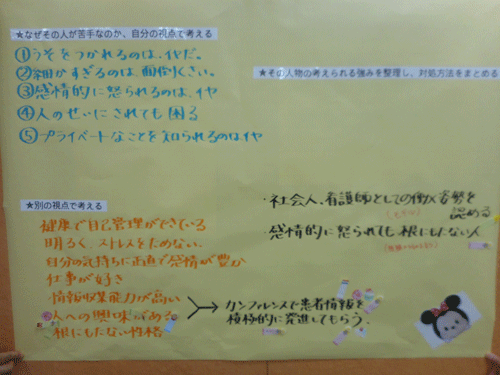 ★なぜその人が苦手なのか、自分の視点で考える
①うそをつかれるのは、イヤだ。
②細かすぎるのは、面倒くさい。
③感情的に怒られるのは、イヤ
④人のせいにされても困る
⑤プライベートなことを知られるのはイヤ
★その人物の考えられる強みを整理し、対処方法をまとめる
★別の視点で考える
健康で自己管理ができている
明るく、ストレスをためない。
自分の気持ちに正直で感情が豊か
仕事が好き
・情報収集能力が高い
人への興味がある
根にもたない性格
・社会人、看護師としての働く姿勢を
認める
・感情的に怒られても根にもたない人
カンファレンスで患者情報を
積極的に発進してもらう。